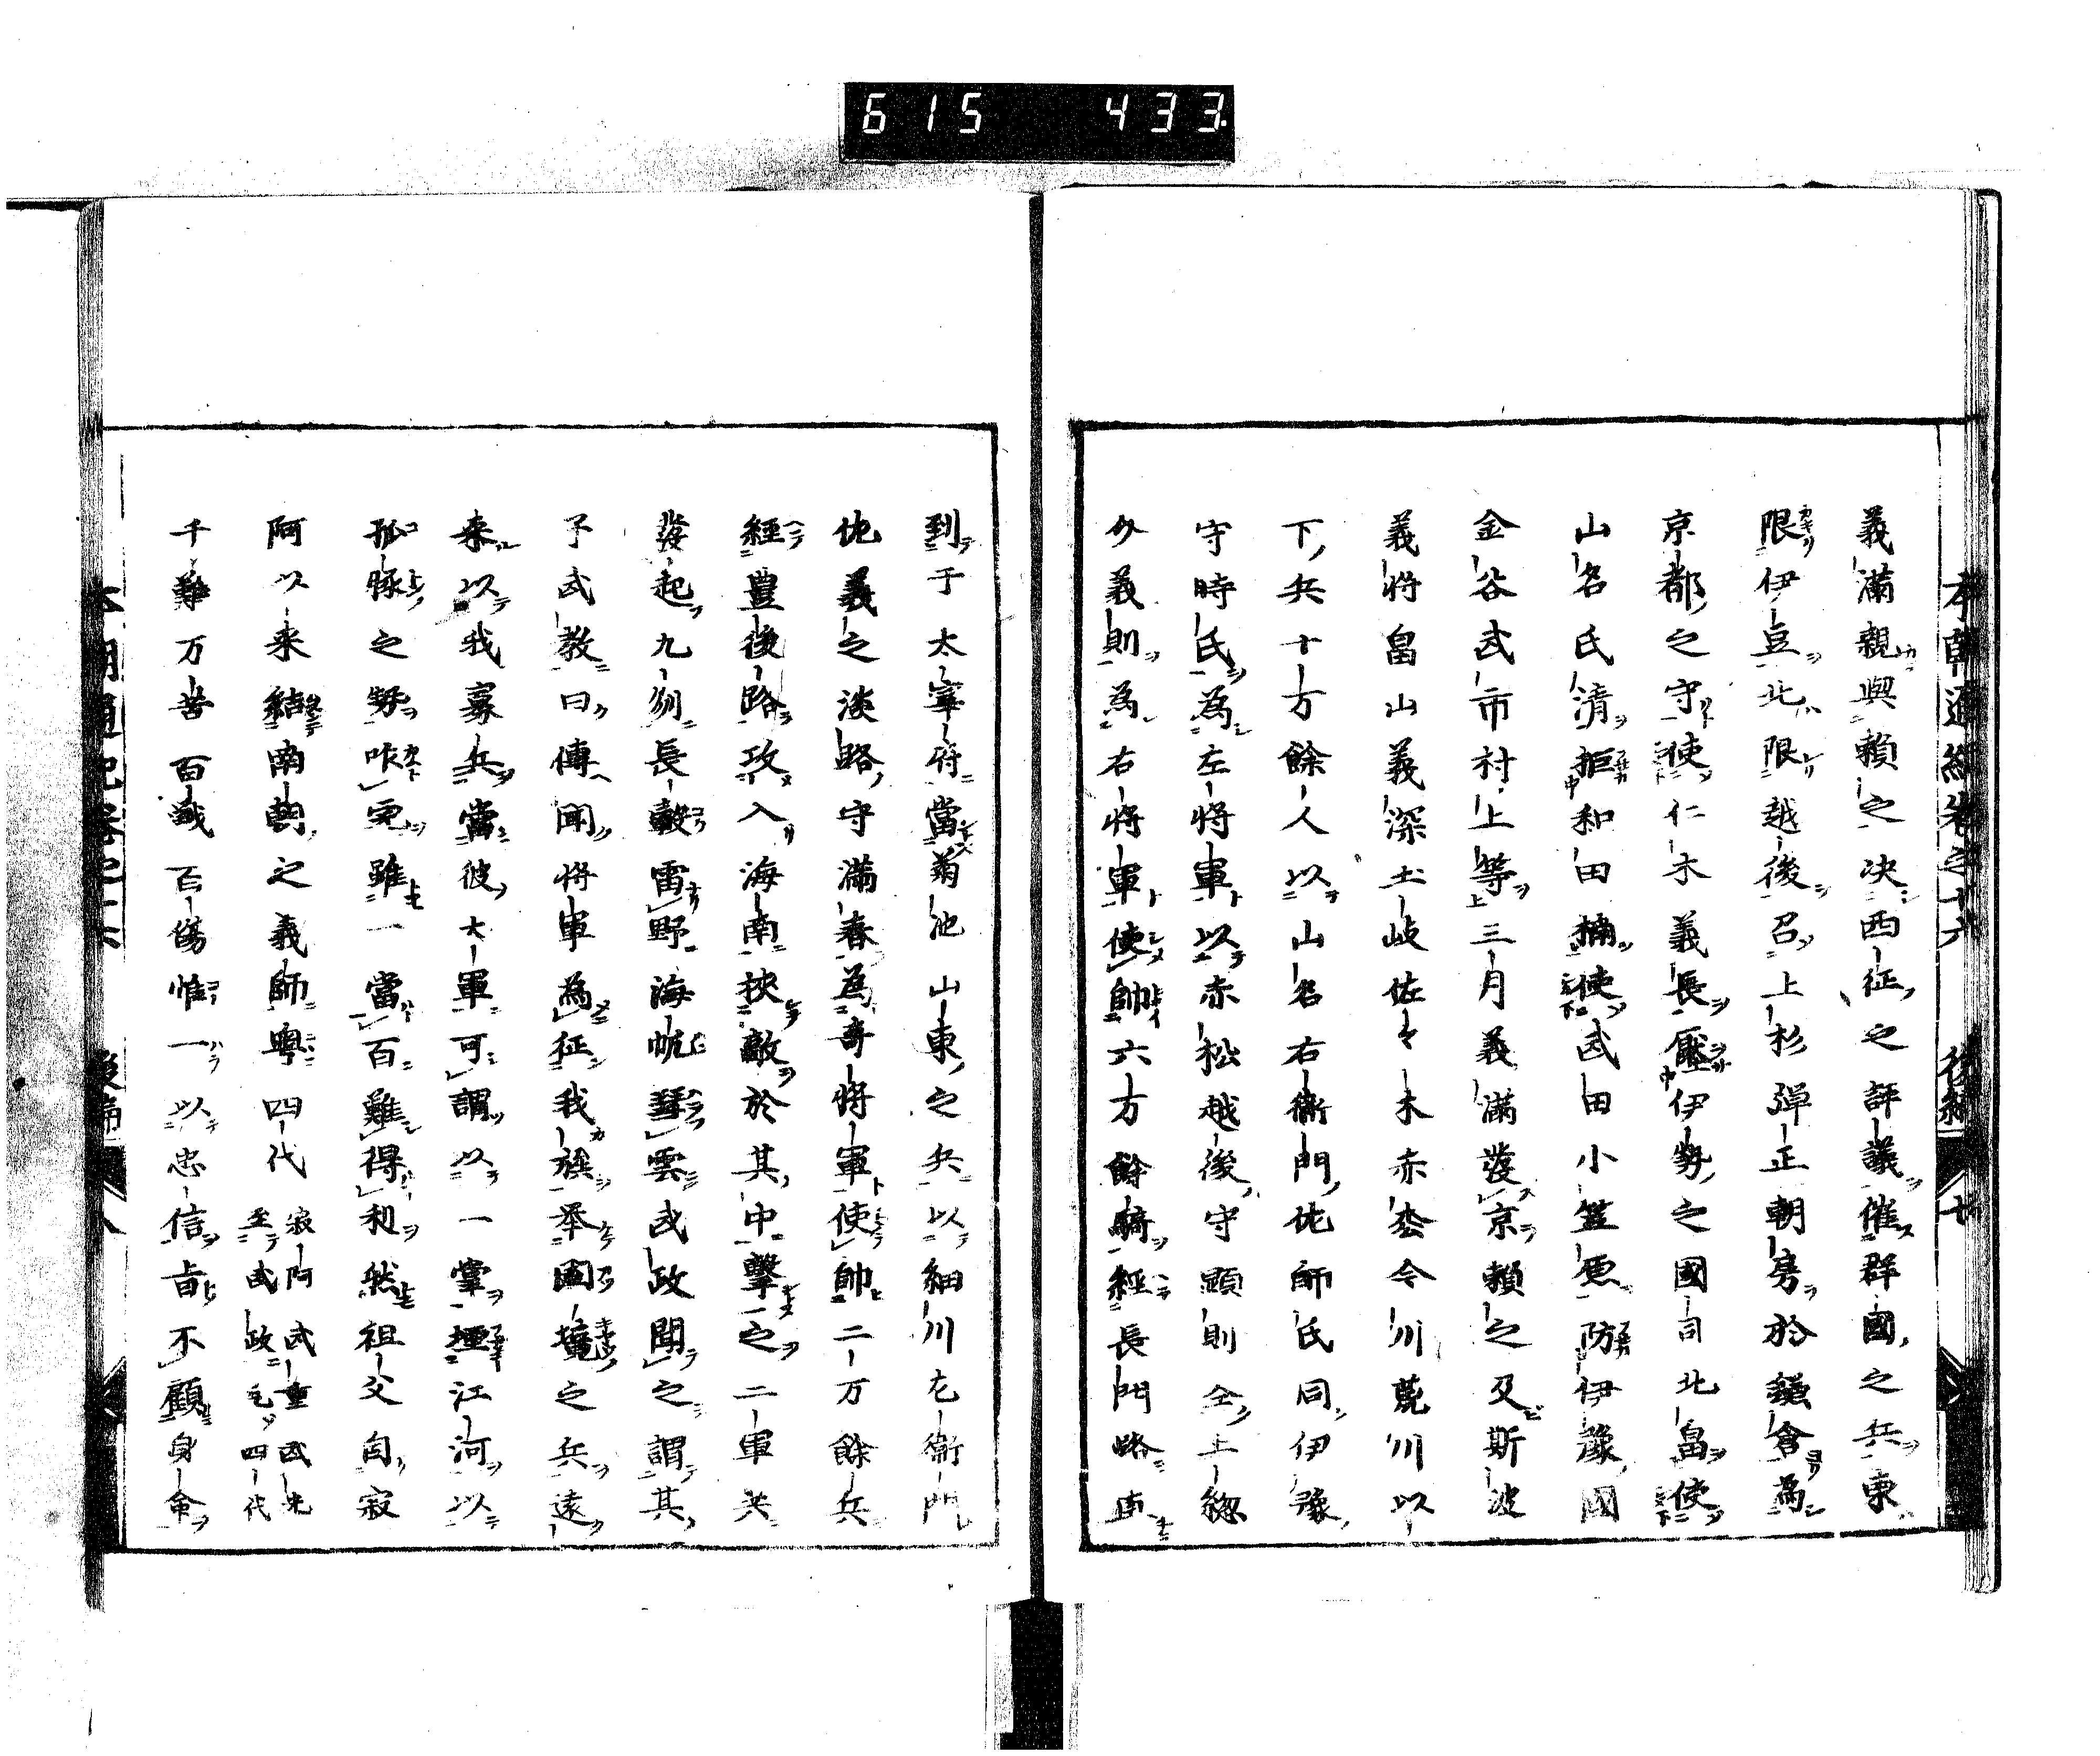 615 433
義滿親與頼之决西征之評議催群國之兵東
限伊豆北限越後召上杉彈正朝房於鎌倉為
京都之守使仁木義長壓伊勢之國司北畠使
山名氏清拒和田楠使武田小笠原防伊豫國
金谷武市村上等三月義滿發京頼之及斯波
義将畠山義深土岐佐々木赤松今川荒川以
下兵十万餘人以山名右衛門佐師氏同伊豫
守時氏為左将軍以赤松越後守顕則仝上総
介義則為右将軍使帥六万餘騎經長門路直
到于太宰府當菊池山東之兵以細川左衛門
佐義之淡路守滿春為奇将軍使帥二万餘兵
經豊後路攻入海南挾敵於其中擊之二軍共
發起九列長轂雷野海帆雲武政聞之謂其
子武教曰傳聞将軍為征我族举國境之兵遠
来以我寡兵當彼大軍可謂以一掌堙江河以
孤豚之勢咋虎雖一當百難得利然祖父自寂
阿以来結南朝之義師粤四代 寂阿武重武光
至武政乞四代
千難万苦百戰百傷惟一以忠信旨不顧身命
本朝通紀卷之十六 後編 七
本朝通紀卷之十六 後編 八